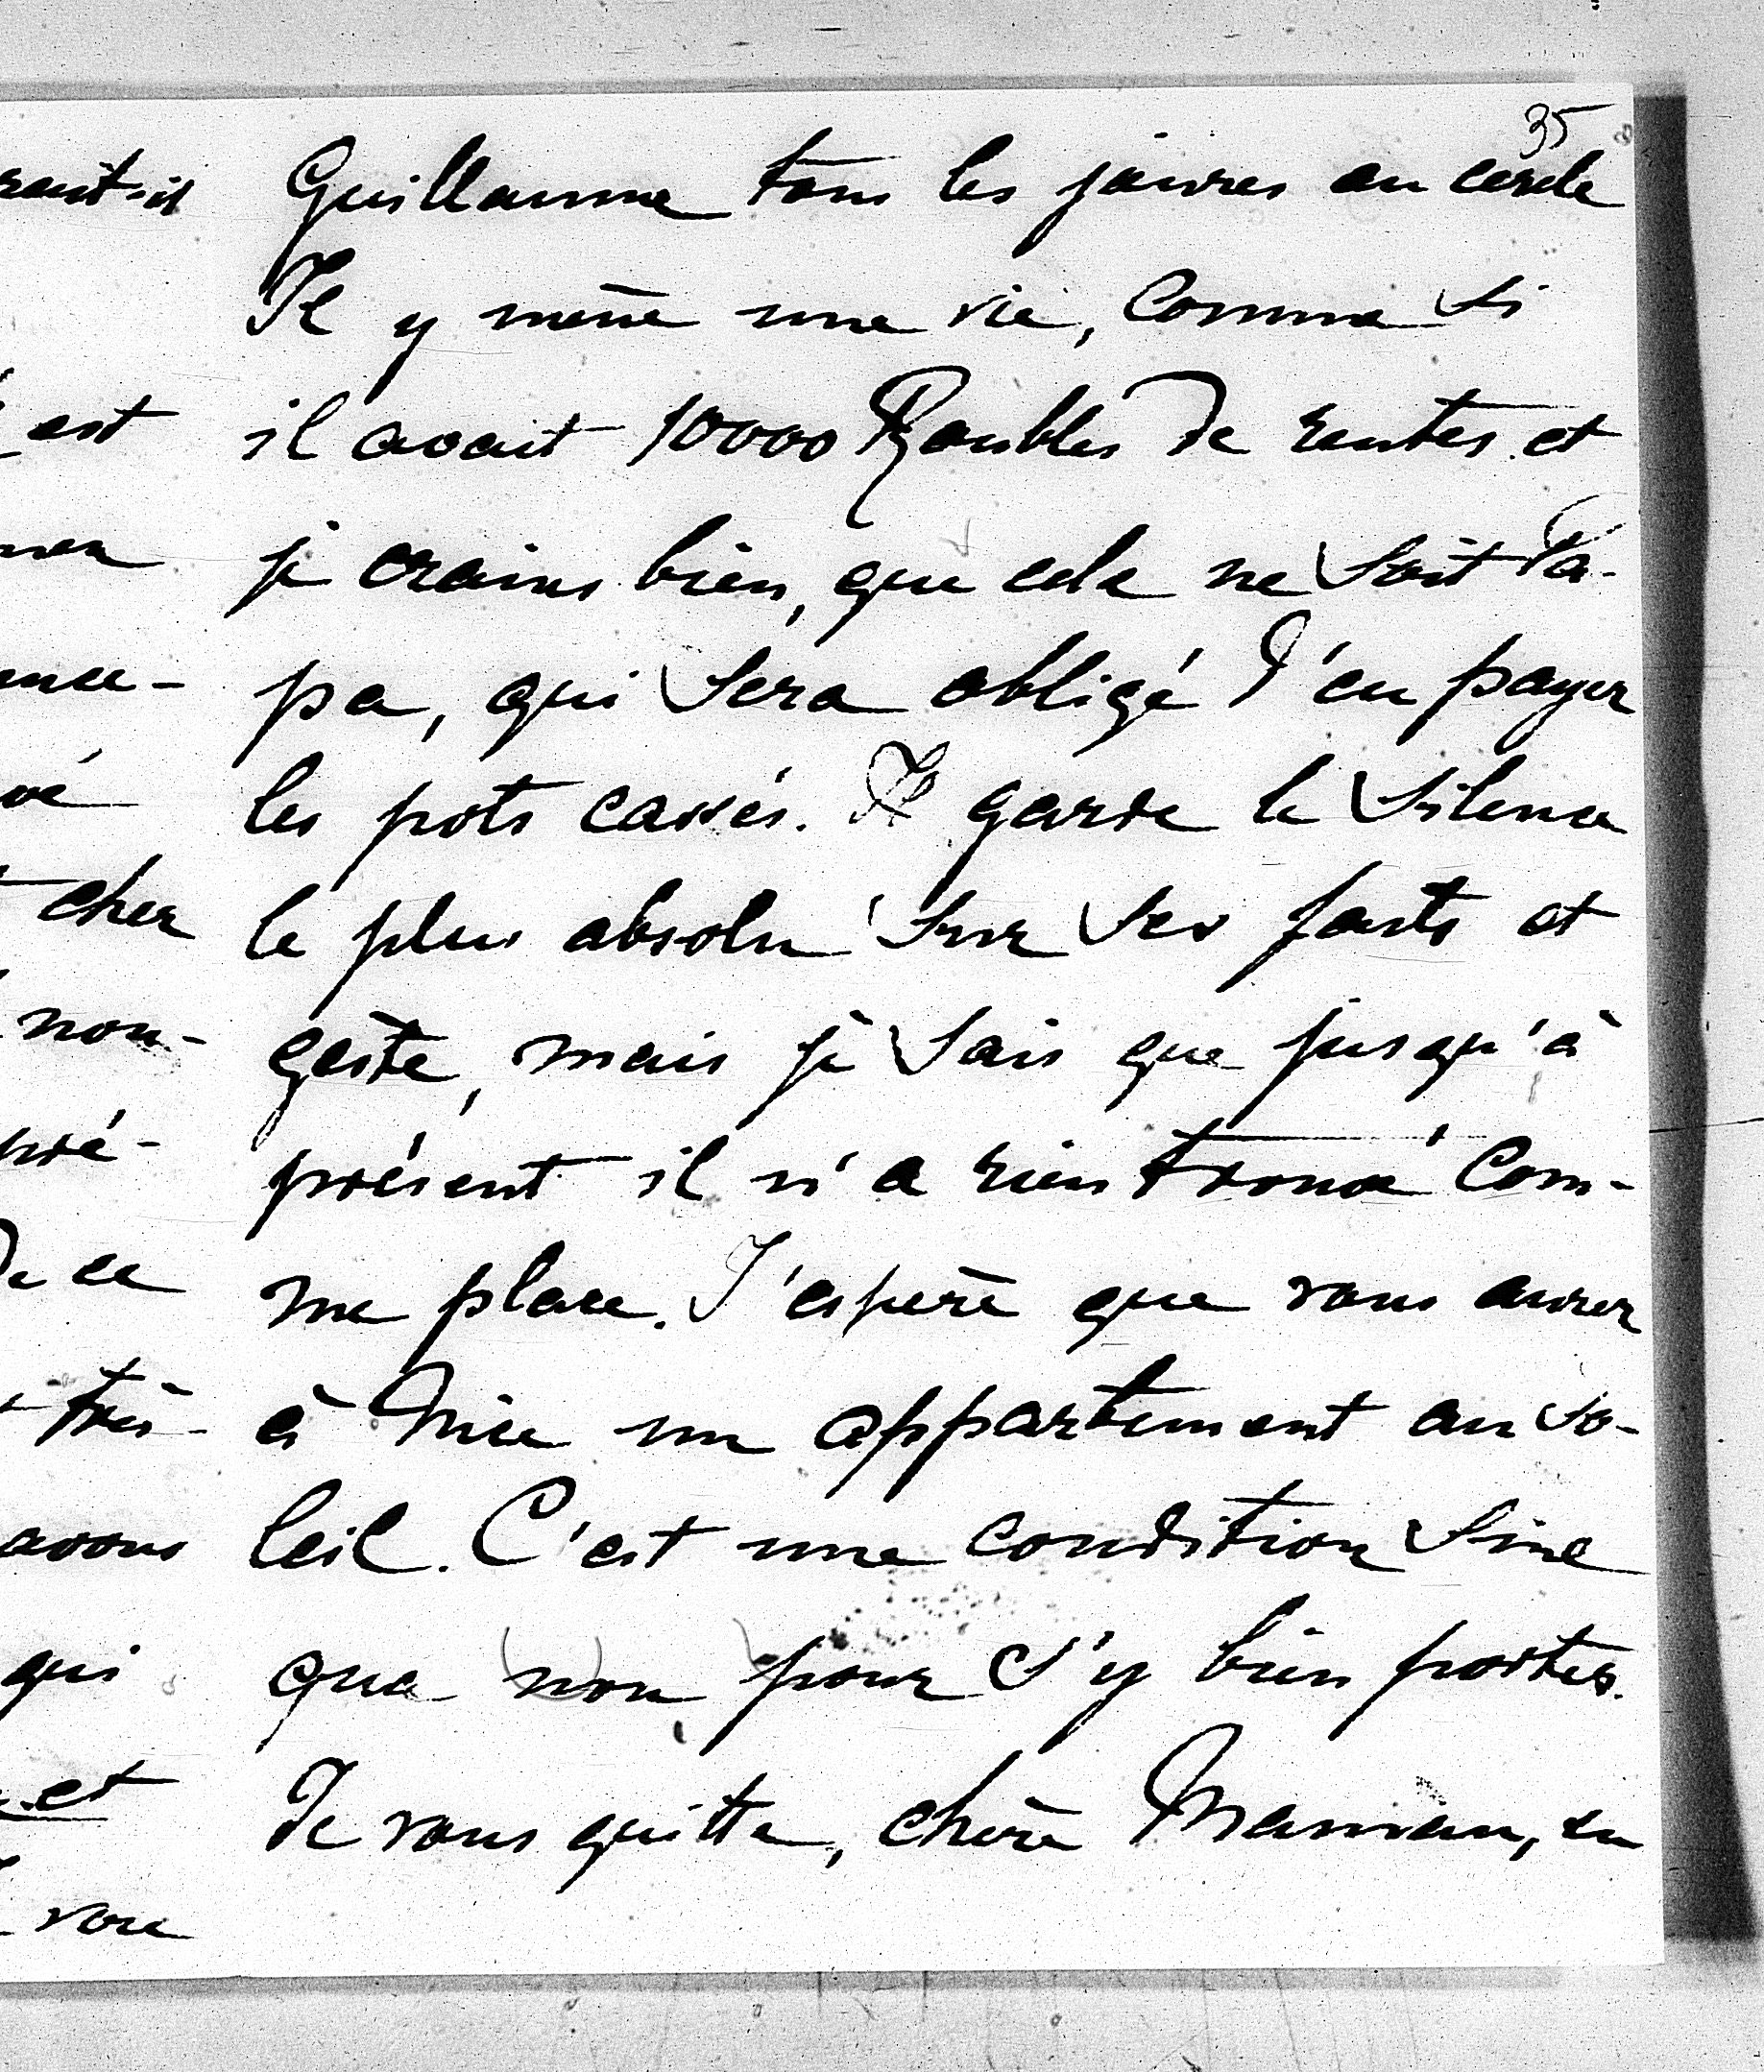 35
Guillaume tous les jours au cercle
Il y mène une vie, comme si
il avait 10000 Roubles de rentes et
je crains bien, que cela ne soit Pa-
pa, qui sera obligé d'en payer
les pots cassés. Il garde le silence
le plus absolu sur ses faits et
geste, mais je sais que jusqu'à
présent il n'a rien trouvé com-
me place. J'espère que vous aurez
à Nice un appartement au so-
leil. C'est une condition sine
qua non pour s'y bien porter.
Je vous quitte, chère Maman, en
est
cher
nou-
de ce
très-
avons
qui
et